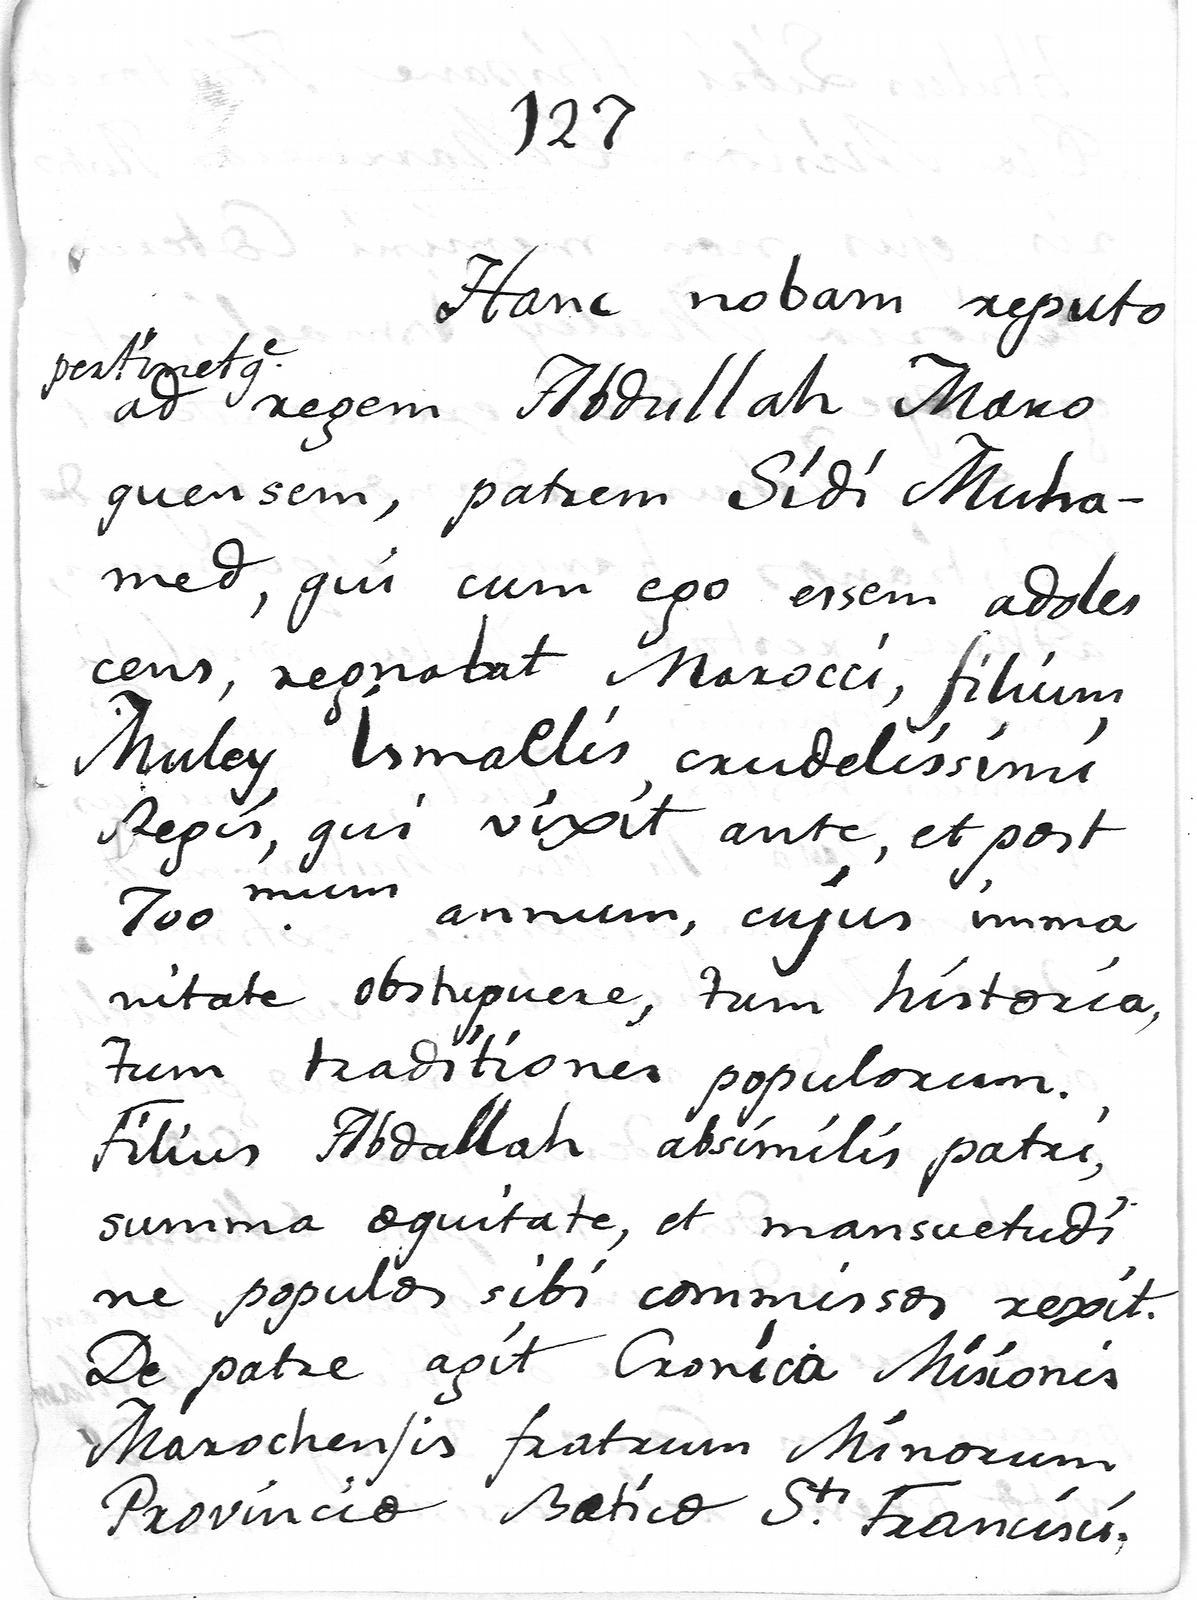 127
Hanc nobam reputo
pertinetqe.
ad regem Abdullah Maro
quensem, patrem Sidi Muha-
med, qui cum ego essem adoles
cens, regnabat Marocci, filium
Muley Ismaelis, crudelissimi
Regis, qui vixit ante, et post
700mum. annum, cujus imma
nitate obstupuere, tum historia,
tum traditiones populorum.
Filius Abdallah absimilis patri,
summa æquitate, et mansuetudi
ne populos sibi commissos rexit.
De patre agit Cronica Misionis
Marochensis fratrum Minorum
Provinciæ Bæticæ Sti. Francisci,